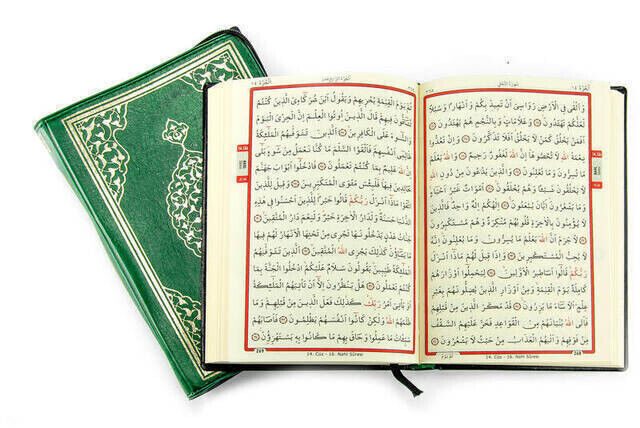 سورة النحل
وَاَلْقٰى فِي الْاَرْضِ رَوَاسِيَ اَنْ تَمِيدَ بِكُمْ وَاَنْهَارًا وَسُبُلًا
لَعَلَّكُمْ تَهْتَدُونَ وَعَلَامَاتٍ وَبِالنَّجْمِ هُمْ يَهْتَدُونَ
اَفَمَنْ يَخْلُقُ كَمَنْ لَا يَخْلُقُ اَفَلَا تَذَكَّرُونَ وَاِنْ تَعُدُّوا
نِعْمَةَ اللّٰهِ لَا تُحْصُوهَا اِنَّ اللّٰهَ لَغَفُورٌ رَحِيمٌ وَاللّٰهُ يَعْلَمُ
مَا تُسِرُّونَ وَمَا تُعْلِنُونَ وَالَّذِينَ يَدْعُونَ مِنْ دُونِ
اللّٰهِ لَا يَخْلُقُونَ شَيْئًا وَهُمْ يُخْلَقُونَ اَمْوَاتٌ غَيْرُ اَحْيَاءٍ
وَمَا يَشْعُرُونَ اَيَّانَ يُبْعَثُونَ اِلٰهُكُمْ اِلٰهٌ وَاحِدٌ فَالَّذِينَ
لَا يُؤْمِنُونَ بِالْاٰخِرَةِ قُلُوبُهُمْ مُنْكِرَةٌ وَهُمْ مُسْتَكْبِرُونَ
لَا جَرَمَ اَنَّ اللّٰهَ يَعْلَمُ مَا يُسِرُّونَ وَمَا يُعْلِنُونَ اِنَّهُ
لَا يُحِبُّ الْمُسْتَكْبِرِينَ وَاِذَا قِيلَ لَهُمْ مَاذَا اَنْزَلَ
رَبُّكُمْ قَالُوا اَسَاطِيرُ الْاَوَّلِينَ لِيَحْمِلُوا اَوْزَارَهُمْ
كَامِلَةً يَوْمَ الْقِيٰمَةِ وَمِنْ اَوْزَارِ الَّذِينَ يُضِلُّونَهُمْ بِغَيْرِ
عِلْمٍ اَلَا سَاءَ مَا يَزِرُونَ قَدْ مَكَرَ الَّذِينَ مِنْ قَبْلِهِمْ
فَاَتَى اللّٰهُ بُنْيَانَهُمْ مِنَ الْقَوَاعِدِ فَخَرَّ عَلَيْهِمُ السَّقْفُ
مِنْ فَوْقِهِمْ وَاَتٰيهُمُ الْعَذَابُ مِنْ حَيْثُ لَا يَشْعُرُونَ
14. Cüz - 16. Nahl Sûresi
268
ثُمَّ يَوْمَ الْقِيٰمَةِ يُخْزِيهِمْ وَيَقُولُ اَيْنَ شُرَكَاءِيَ الَّذِينَ كُنْتُمْ
تُشَاقُّونَ فِيهِمْ قَالَ الَّذِينَ اُوتُوا الْعِلْمَ اِنَّ الْخِزْيَ الْيَوْمَ
وَالسُّوءَ عَلَى الْكَافِرِينَ اَلَّذِينَ تَتَوَفّٰيهُمُ الْمَلٰئِكَةُ
ظَالِمِي اَنْفُسِهِمْ فَاَلْقَوُا السَّلَمَ مَا كُنَّا نَعْمَلُ مِنْ سُوءٍ بَلٰى
اِنَّ اللّٰهَ عَلِيمٌ بِمَا كُنْتُمْ تَعْمَلُونَ فَادْخُلُوا اَبْوَابَ جَهَنَّمَ
خَالِدِينَ فِيهَا فَلَبِئْسَ مَثْوَى الْمُتَكَبِّرِينَ وَقِيلَ لِلَّذِينَ
اتَّقَوْا مَاذَا اَنْزَلَ رَبُّكُمْ قَالُوا خَيْرًا لِلَّذِينَ اَحْسَنُوا
فِي هٰذِهِ الدُّنْيَا حَسَنَةٌ وَلَدَارُ الْاٰخِرَةِ خَيْرٌ وَلَنِعْمَ دَارُ الْمُتَّقِينَ
جَنَّاتُ عَدْنٍ يَدْخُلُونَهَا تَجْرِي مِنْ تَحْتِهَا الْاَنْهَارُ لَهُمْ فِيهَا
مَا يَشَاؤُنَ كَذٰلِكَ يَجْزِي اللّٰهُ الْمُتَّقِينَ اَلَّذِينَ تَتَوَفّٰيهُمُ
الْمَلٰئِكَةُ طَيِّبِينَ يَقُولُونَ سَلَامٌ عَلَيْكُمُ ادْخُلُوا الْجَنَّةَ بِمَا
كُنْتُمْ تَعْمَلُونَ هَلْ يَنْظُرُونَ اِلَّا اَنْ تَأْتِيَهُمُ الْمَلٰئِكَةُ
اَوْ يَأْتِيَ اَمْرُ رَبِّكَ كَذٰلِكَ فَعَلَ الَّذِينَ مِنْ قَبْلِهِمْ وَمَا
ظَلَمَهُمُ اللّٰهُ وَلٰكِنْ كَانُوا اَنْفُسَهُمْ يَظْلِمُونَ فَاَصَابَهُمْ
سَيِّئَاتُ مَا عَمِلُوا وَحَاقَ بِهِمْ مَا كَانُوا بِهِ يَسْتَهْزِؤُنَ
269
14. Cüz - 16. Nahl Sûresi